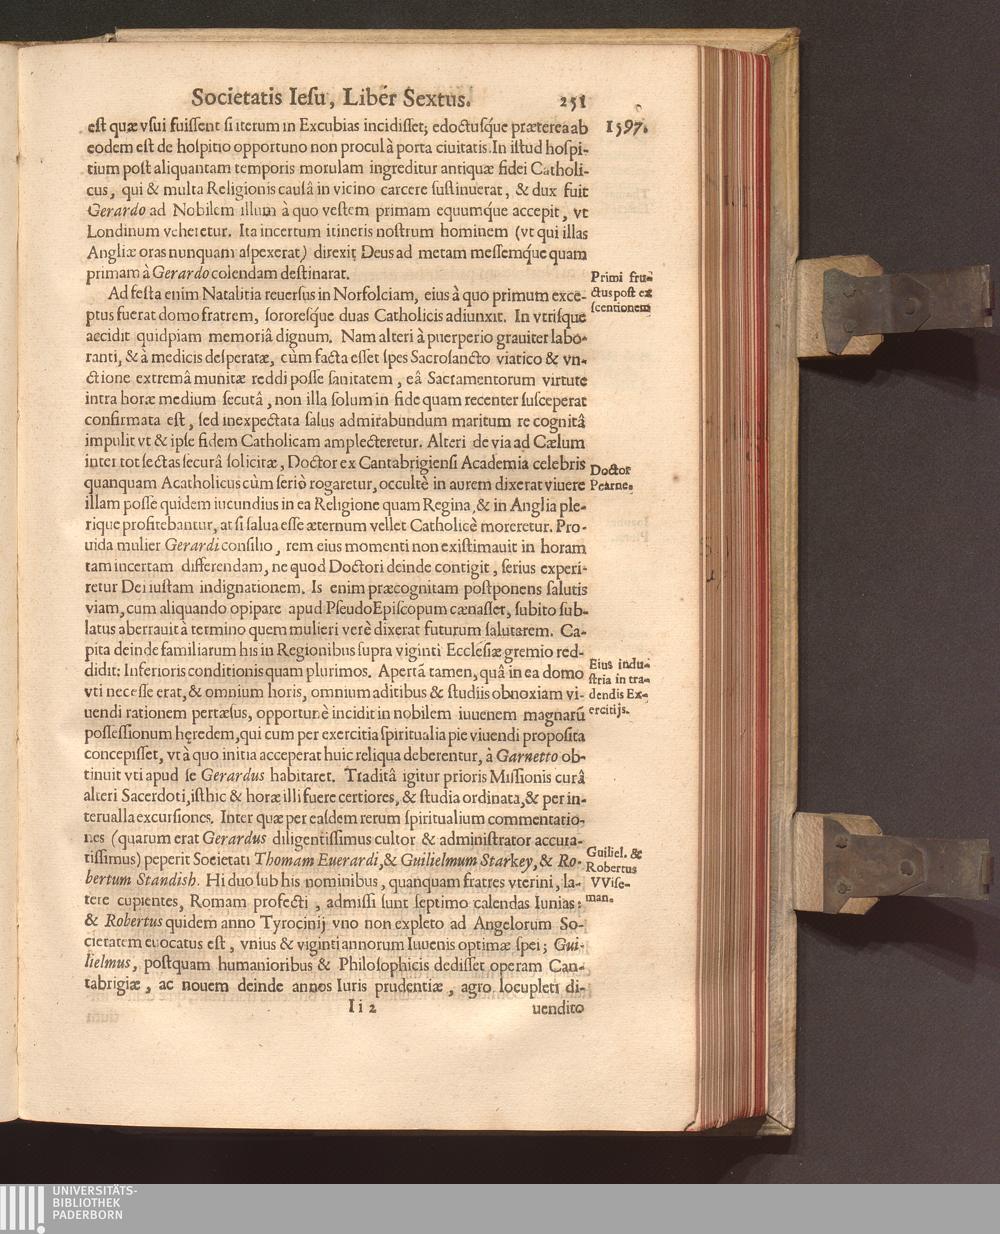 Societatis Iesu, Liber Sextus. 251
est quæ vsui fuissent si iterum in Excubias incidisset; edoctusq́ue præterea ab 1597.
eodem est de hospitio opportuno non procul à porta ciuitatis. In istud hospi-
tium post aliquantam temporis morulam ingreditur antiquæ fidei Catholi-
cus, qui & multa Religionis causâ in vicino carcere sustinuerat, & dux fuit
Gerardo ad Nobilem illum à quo vestem primam equumq́ue accepit, vt
Londinum veheretur. Ita incertum itineris nostrum hominem (vt qui illas
Angliæ oras nunquam aspexerat) direxit Deus ad metam messemq́ue quam
primam à Gerardo colendam destinarat.
Ad festa enim Natalitia reuersus in Norfolciam, eius à quo primum exce-
ptus fuerat domo fratrem, sororesq́ue duas Catholicis adiunxit. In vtrisque
accidit quidpiam memoriâ dignum. Nam alteri à puerperio grauiter labo-
ranti, & à medicis desperatæ, cùm facta esset spes Sacrosancto viatico & vn-
ctione extremâ munitæ reddi posse sanitatem, eâ Sacramentorum virtute
intra horæ medium secutâ, non illa solum in fide quam recenter susceperat
confirmata est, sed inexpectata salus admirabundum maritum re cognitâ
impulit vt & ipse fidem Catholicam amplecteretur. Alteri de via ad Cælum
inter tot sectas securâ solicitæ, Doctor ex Cantabrigiensi Academia celebris
quanquam Acatholicus cùm seriò rogaretur, occultè in aurem dixerat viuere
illam posse quidem iucundius in ea Religione quam Regina, & in Anglia ple-
rique profitebantur, at si salua esse æternum vellet Catholicè moreretur. Pro-
uida mulier Gerardi consilio, rem eius momenti non existimauit in horam
tam incertam differendam, ne quod Doctori deinde contigit, serius experi-
retur Dei iustam indignationem. Is enim præcognitam postponens salutis
viam, cum aliquando opipare apud PseudoEpiscopum cænasset, subito sub-
latus aberrauit à termino quem mulieri verè dixerat futurum salutarem. Ca-
pita deinde familiarum his in Regionibus supra viginti Ecclesiæ gremio red-
didit: Inferioris conditionis quam plurimos. Apertā tamen, quâ in ea domo
vti necesse erat, & omnium horis, omnium aditibus & studiis obnoxiam vi-
uendi rationem pertæsus, opportunè incidit in nobilem iuuenem magnarū
possessionum hęredem, qui cum per exercitia spiritualia pie viuendi proposita
concepisset, vt à quo initia acceperat huic reliqua deberentur, à Garnetto ob-
tinuit vti apud se Gerardus habitaret. Traditâ igitur prioris Missionis curâ
alteri Sacerdoti, isthic & horæ illi fuere certiores, & studia ordinata, & per in-
terualla excursiones. Inter quæ per easdem rerum spiritualium commentatio-
nes (quarum erat Gerardus diligentissimus cultor & administrator accura-
tissimus) peperit Societati Thomam Euerardi, & Guilielmum Starkey, & Ro-
bertum Standish. Hi duo sub his nominibus, quanquam fratres vterini, la-
tere cupientes, Romam profecti, admissi sunt septimo calendas Iunias:
& Robertus quidem anno Tyrocinij vno non expleto ad Angelorum So-
cietatem euocatus est, vnius & viginti annorum Iuuenis optimæ spei; Gui-
lielmus, postquam humanioribus & Philosophicis dedisset operam Can-
tabrigiæ, ac nouem deinde annos Iuris prudentiæ, agro locupleti di-
Ii 2 uendito
Primi fru-
ctus post ex
scentionem
Doctor
Pearne.
Eius indu-
stria in tra-
dendis Ex-
ercitijs.
Guiliel. &
Robertus
VVise-
man.
UNIVERSITÄTS-
BIBLIOTHEK
PADERBORN